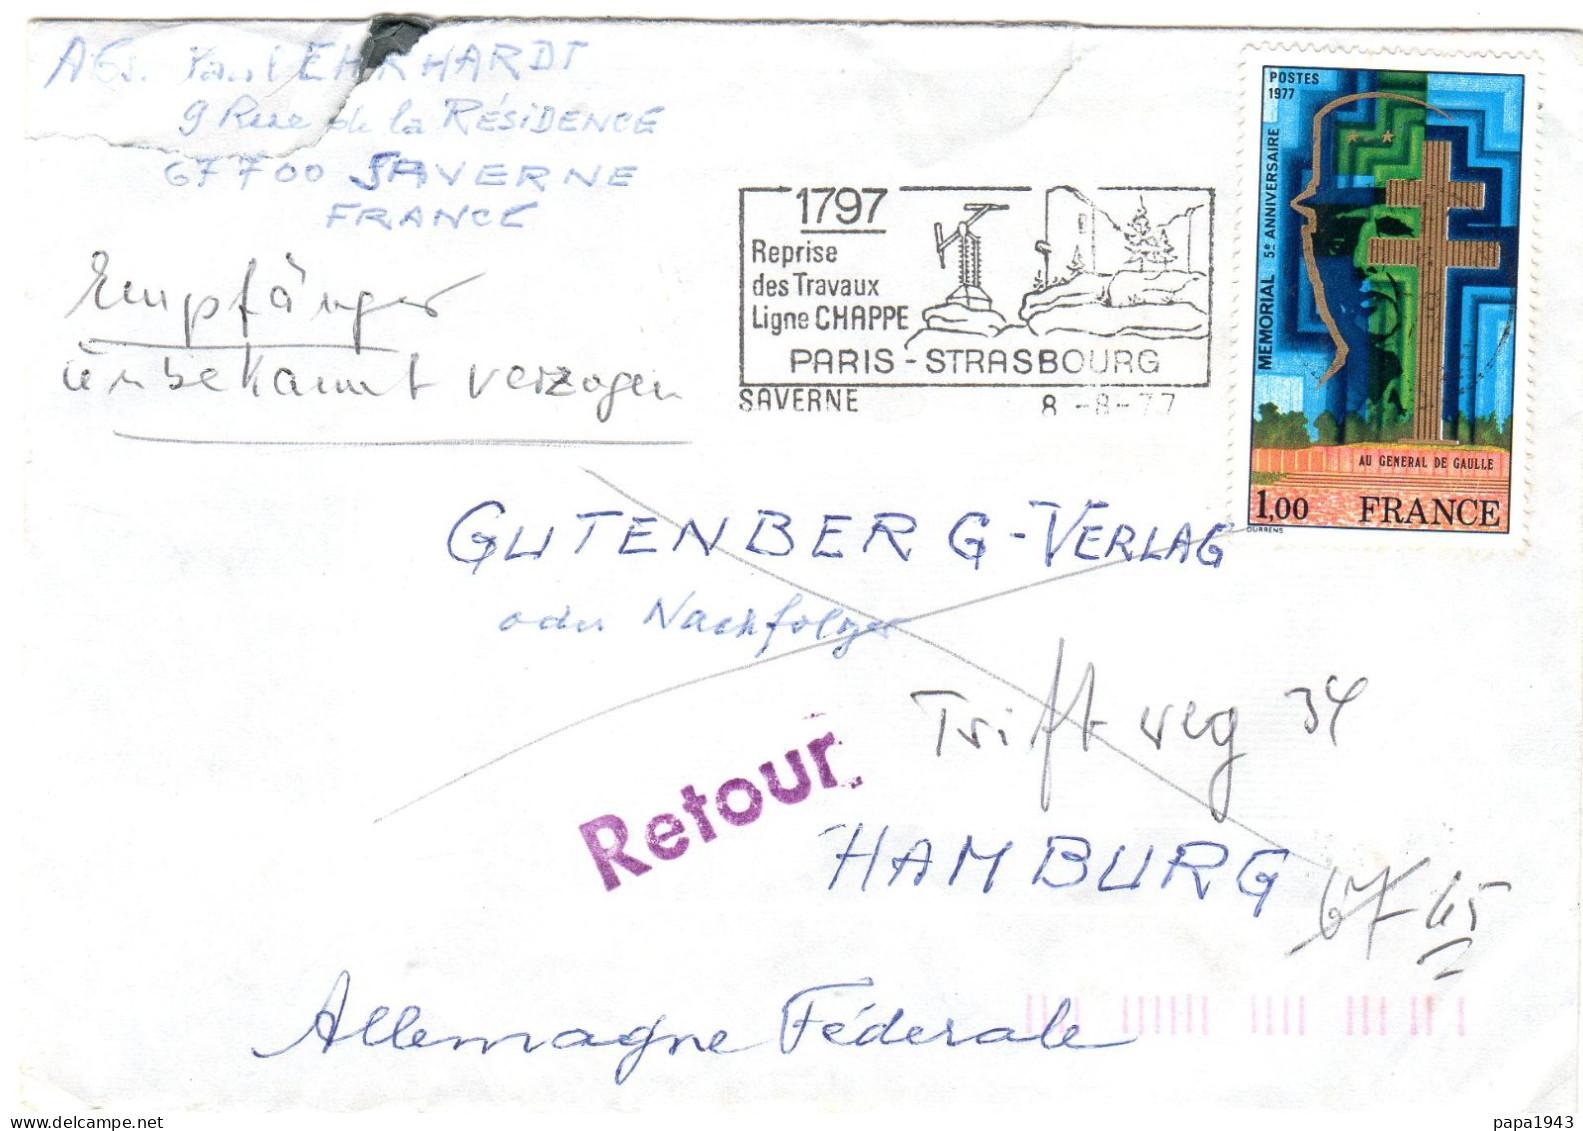 Paul EHRHARDT
9 Rue de la RÉSIDENCE
67700 SAVERNE
FRANCE
Empfänger
unbekannt verzogen
1797
Reprise
des Travaux
Ligne CHAPPE
PARIS - STRASBOURG
SAVERNE 8 -8-77
POSTES
1977
MEMORIAL 5e ANNIVERSAIRE
AU GENERAL DE GAULLE
1,00 FRANCE
DURRENS
GUTENBERG-VERLAG
oder Nachfolger
Triftweg 34
Retour
HAMBURG
67 65
Allemagne Fédérale
papa1943